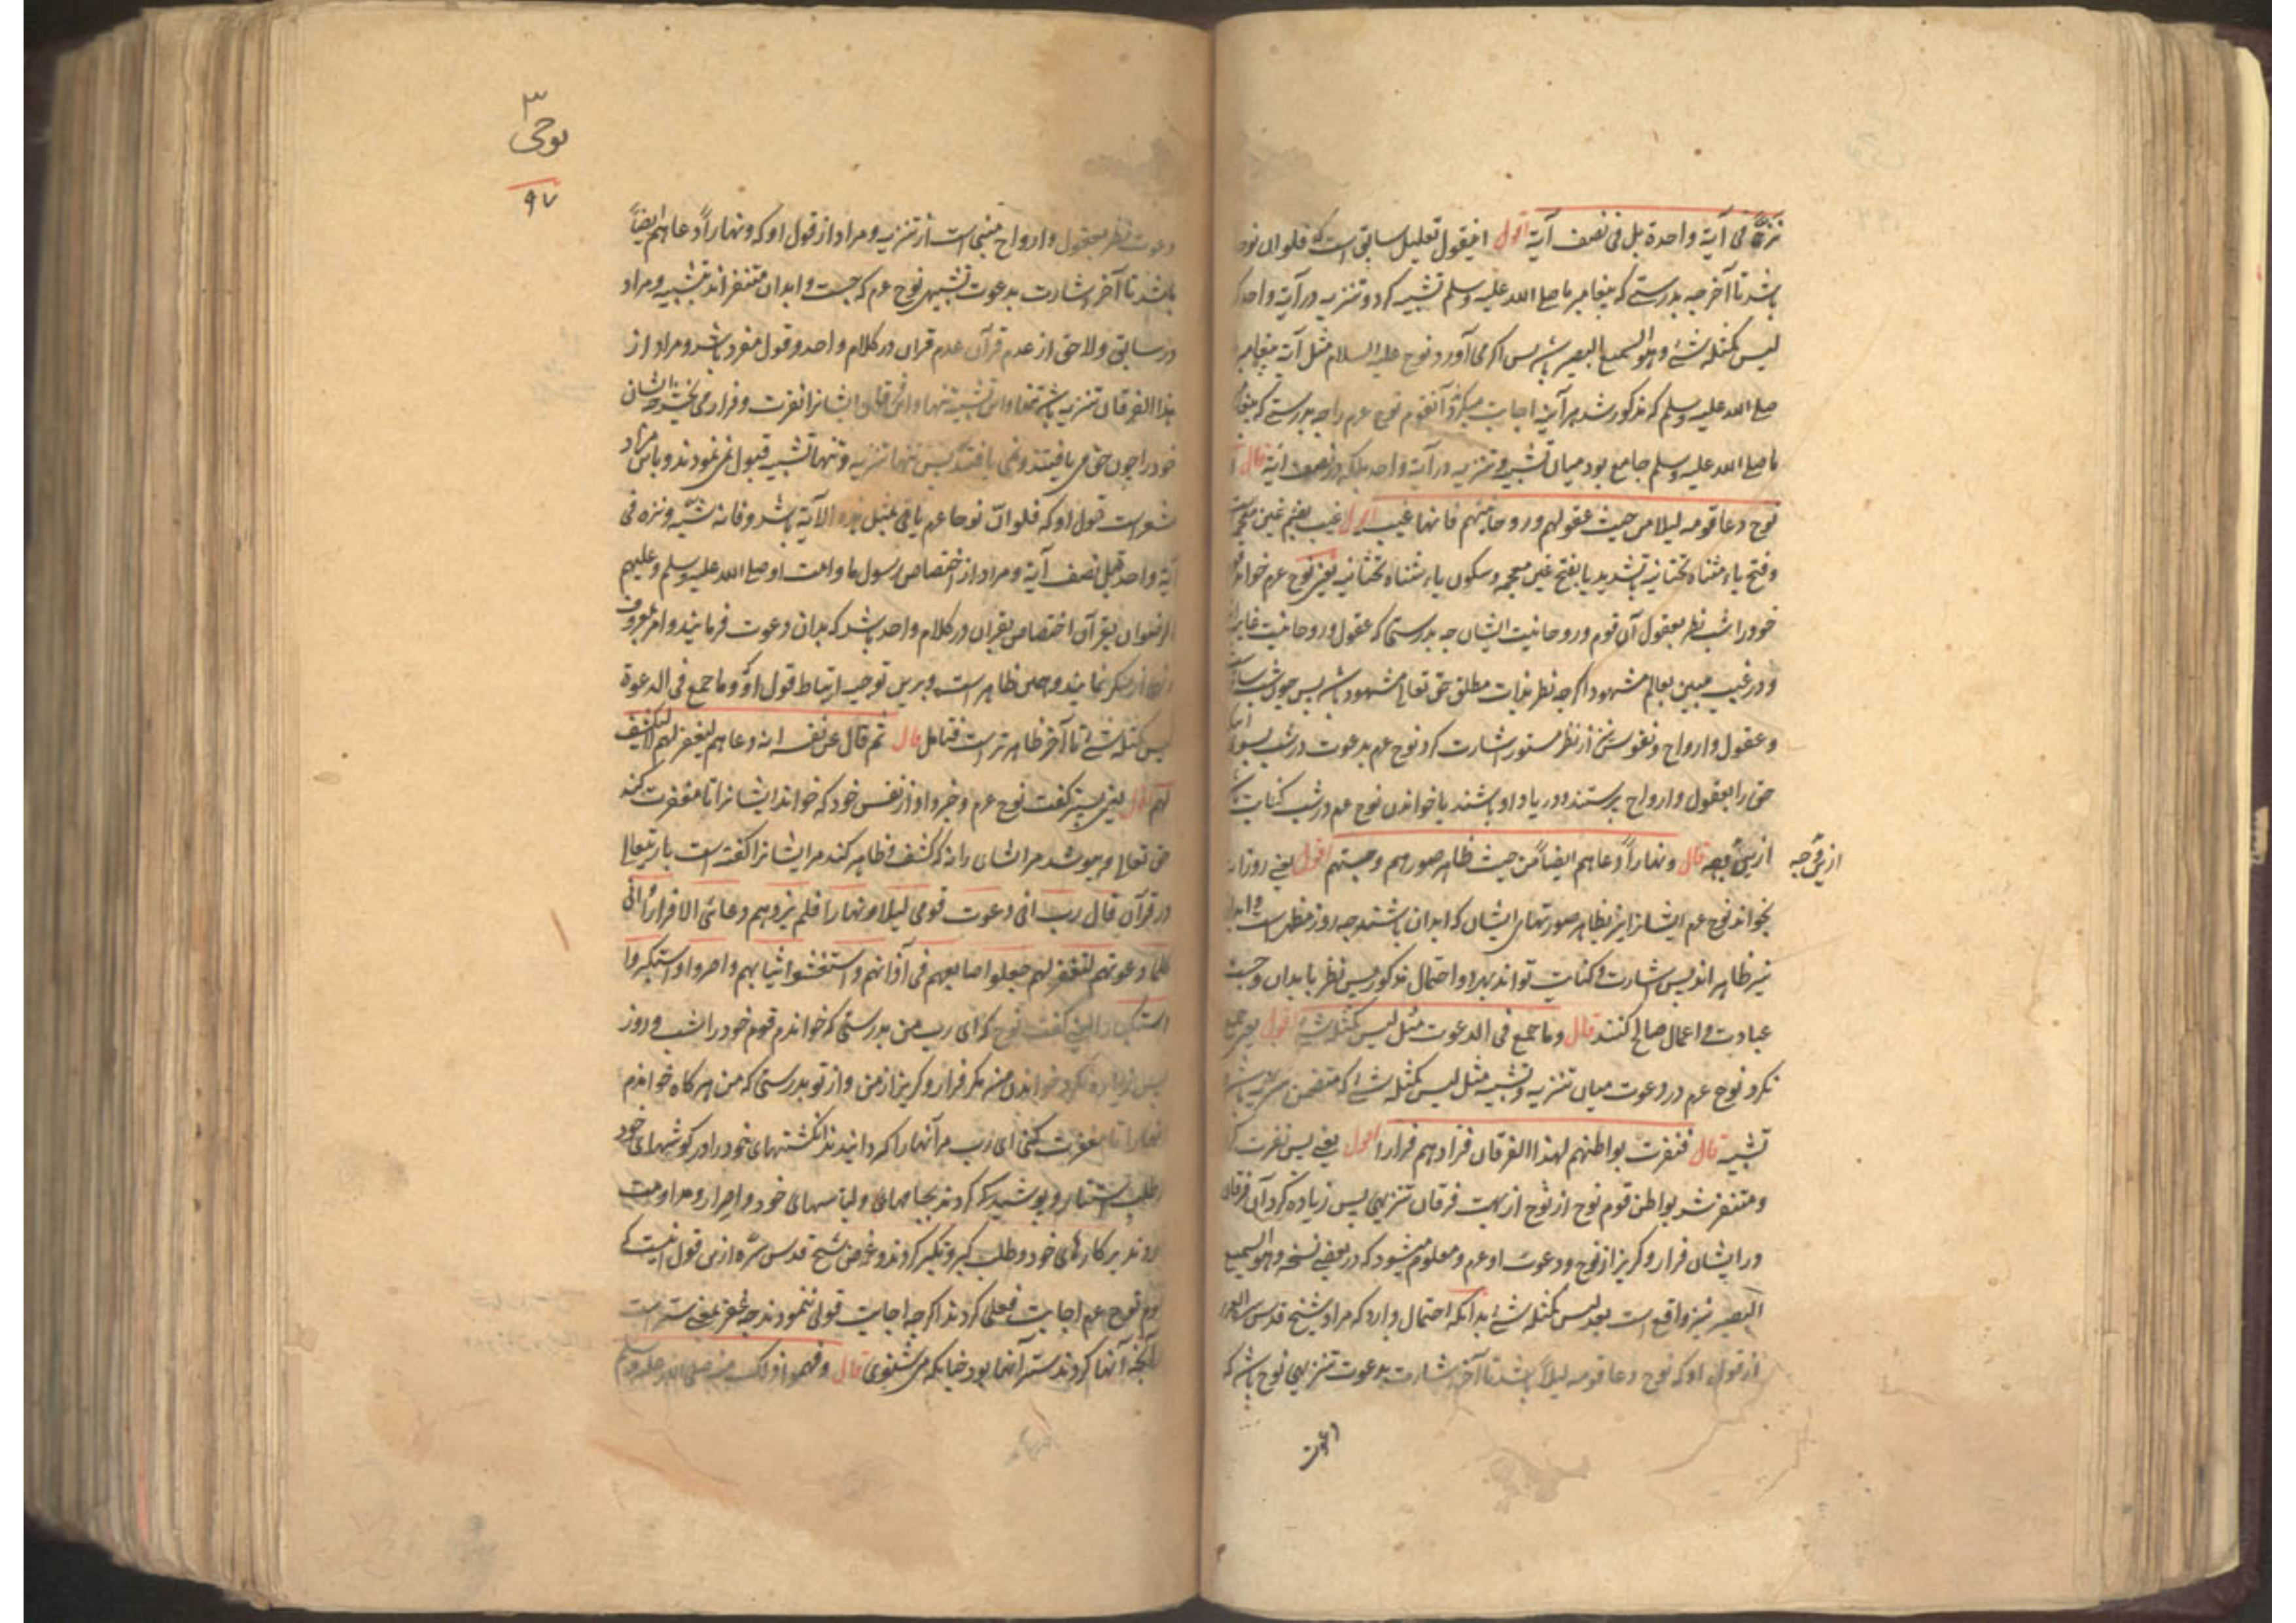 نزه فی آیة واحدة بل فی نصف آیة اقول اینقول تعلیل سابق است که فلو ان نوحا
باشد تا آخر چه بدرستی که پیغامبر ما صلی الله علیه وسلم تشبیه کرد و تنزیه در آیة واحد که
لیس کمثله شیء وهو السمیع البصیر باشد پس اگر می آورد نوح علیه السلام مثل آیة پیغامبر
صلی الله علیه وسلم که مذکور شد هر آینه اجابت میکرد آنقوم نوح عم را چه بدرستی که پیغامبر
ما صلی الله علیه وسلم جامع بود میان تشبیه و تنزیه در آیة واحد بلکه در نصف آیة قال
نوح دعا قومه لیلا من حیث عقولهم وروحانیتهم فانها غیب اقول غیب بضم غین معجمه
وفتح یاء مثناه تحتانیه بتشدید یا بفتح غین معجمه وسکون یاء مثناه تحتانیه یعنی نوح عم خواند قوم
خود را شب نظر بعقول آن قوم وروحانیت ایشان چه بدرستی که عقول وروحانیت غایب اند
ودر غیب مبین بعالم مشهود اگرچه نظر بذات مطلق حق تعالی مشهود باشد پس چون شب ساتر
وعقول وارواح ونفوس نیز از نظر مستور اشارت کرد نوح عم بدعوت در شب بسوی
حق را بعقول وارواح پرستند ودر یاد او باشند یا خواندن نوح عم در شب کنایت باشد
ازین قال ونهارا دعاهم ایضا من حیث ظاهر صورهم وجثتهم اقول یعنی روزانه
ازین وجه
بخواند نوح عم ایشانرا نیز بظاهر صورتهای ایشان که ابدان باشند چه روز مظهر است وابدان
نیز ظاهر اند پس اشارت وکنایت تواند بود واحتمال مذکور پس نظر با بدان وجثت
عبادت واعمال صالح کنند قال وما جمع فی الدعوت مثل لیس کمثله شیء اقول یعنی جمع
نکرد نوح عم در دعوت میان تنزیه وتشبیه مثل لیس کمثله شیء که متضمن تنزیه باشد و
تشبیه قال فنفرت بواطنهم لهذا الفرقان فزادهم فرارا اقول یعنی پس نفرت کرد
ومتنفر شد بواطن قوم نوح از نوح از جهت فرقان تنزیهی پس زیاده کرد آن فرقان
در ایشان فرار وگریز از نوح ودعوت او عم ومعلوم میشود که در بعضی نسخه وهو السمیع
البصیر نیز واقع است بعد لیس کمثله شیء بدانکه احتمال دارد که مراد شیخ قدس سره العزیز
از قول او که نوح دعا قومه لیلا باشد تا آخر اشارت بدعوت تنزیهی نوح باشد که
دعوت
۳
نوحی
۹۷
دعوت نظر بعقول وارواح مبنی است از تنزیه ومراد از قول او که ونهارا دعاهم ایضا
باشد تا آخر اشارت بدعوت تشبیهی نوح عم که جثت وابدان متنفر اند تشبیه ومراد
در سابق ولاحق از عدم قرآن عدم قران در کلام واحد وقول منفرد باشد ومراد از
هذا الفرقان تنزیه باشد تنها واین تشبیه تنها واین فرقان ایشانرا نفرت وفرار می بخشد چه ایشان
خود را چون حق می یافتند ونمی یافتند پس تنها تنزیه وتنها تشبیه قبول نمی نمودند وباین مراد
مشعر است قول او که فلو ان نوحا عم یاتی بمثل هذه الآیة باشد وفانه شبه ونزه فی
آیة واحدة بل نصف آیة ومراد از اختصاص رسول ما وامت او صلی الله علیه وسلم وعلیهم
الرضوان بقرآن اختصاص بقران در کلام واحد باشد که بدان دعوت فرمایند وامر بمعروف
ونهی از منکر نمایند وجلی ظاهر است وبرین توجیه ارتباط قول او وما جمع فی الدعوة
لیس کمثله شیء تا آخر ظاهرتر است فتامل قال ثم قال عن نفسه انه دعاهم لیغفر لهم لا لیکشف
لهم اقول یعنی پستر گفت نوح عم وخبر داد از نفس خود که خواند ایشانرا تا مغفرت کند
حق تعالی وبپوشد مر ایشان را نه که کشف وظاهر کند مر ایشانرا گفته است باریتعالی
در قرآن قال رب انی دعوت قومی لیلا ونهارا فلم یزدهم دعائی الا فرارا انی
کلما دعوتهم لتغفر لهم جعلوا اصابعهم فی آذانهم واستغشوا ثیابهم واصروا واستکبروا
استکبارا یعنی گفت نوح که ای رب من بدرستی که خواندم قوم خود را شب وروز
پس زیاده نکرد خواندن من مگر فرار وگریز از من واز تو بدرستی که من هر گاه خواندم
ایشانرا تا مغفرت کنی ای رب مر آنها را گردانیدند انگشتهای خود را در گوشهای خود
وطلب استتار وپوشیدگی کردند بجامهای ولباسهای خود واصرار ومداومت
کردند بر کارهای خود وطلب کبر وتکبر کردند وغرض شیخ قدس سره ازین قول اینست که
قوم نوح عم اجابت فعلی کردند اگرچه اجابت قولی ننمودند چه غفر بمعنی ستر است
وآنچه آنها کردند ستر آنها بود چنانکه می شنوی قال وفهموا ذلک منه صلی الله علیه وسلم